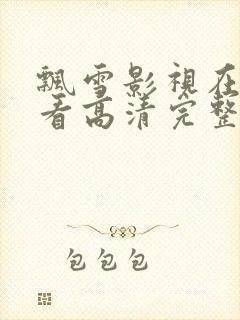 飄雪影視在
看高清完整
包包包